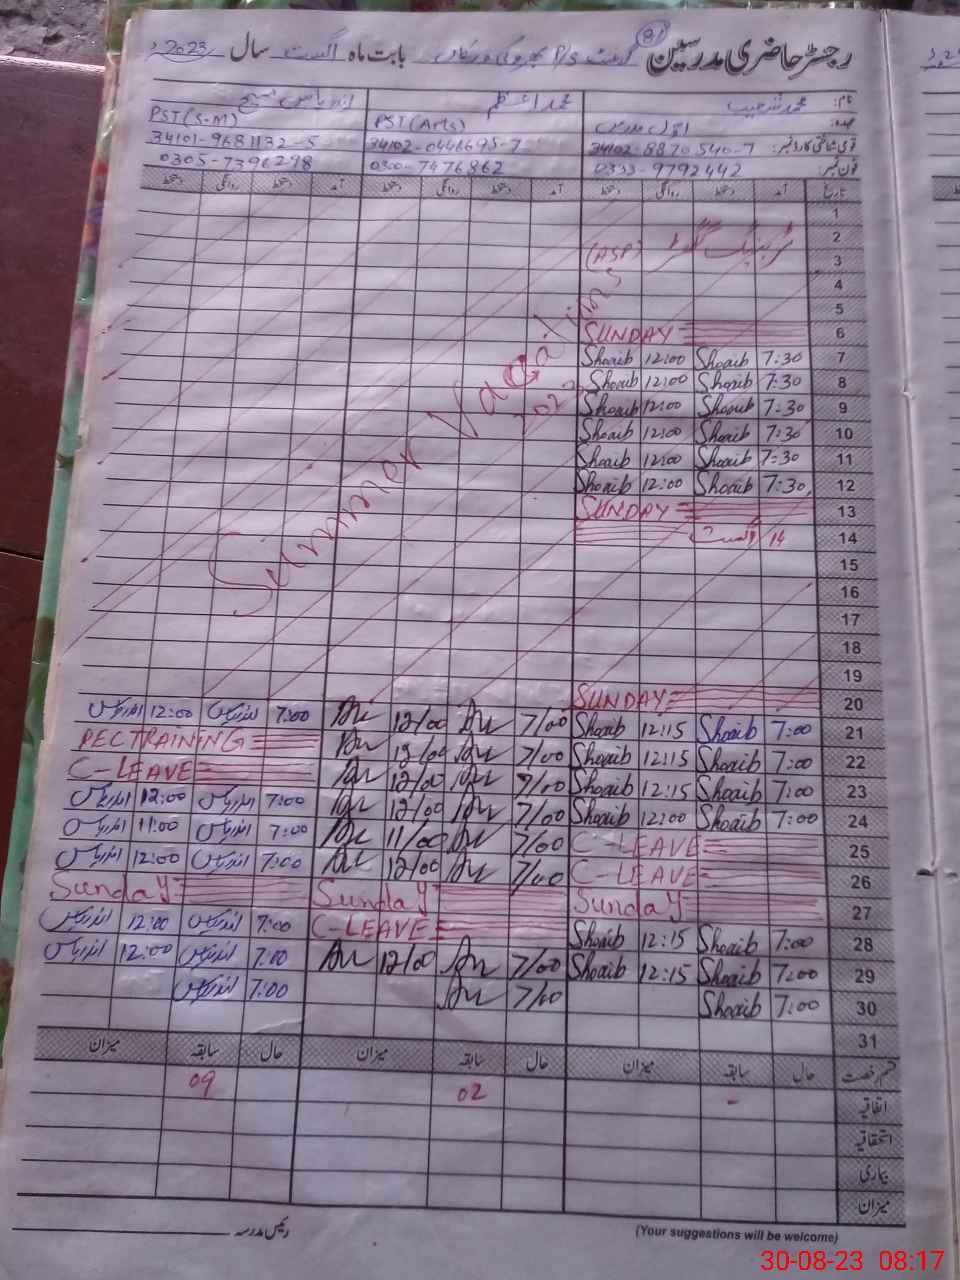 رجسٹر حاضری مدرسین
81
P/S
بابت ماہ اگست سال 2023ء
نام: محمد شعیب
محمد اعظم
عہدہ: اول مدرس
PST (Arts)
PST (S-M)
قومی شناختی کارڈ نمبر: 34102-8870540-7
34102-0446695-7
34101-9681132-5
فون نمبر: 0333-9792442
0300-7476862
0305-7396298
تاریخ آمد دستخط روانگی دستخط آمد دستخط روانگی دستخط آمد دستخط روانگی دستخط
1
2
3 (ASP)
4
5
6 SUNDAY
7 7:30 Shoaib 12:00 Shoaib
8 7:30 Shoaib 12:00 Shoaib
9 7:30 Shoaib 12:00 Shoaib
10 7:30 Shoaib 12:00 Shoaib
11 7:30 Shoaib 12:00 Shoaib
12 7:30 Shoaib 12:00 Shoaib
13 SUNDAY
14 14 اگست
15
16
17
18
19
20 SUNDAY
Summer Vacations
2023
21 7:00 Shoaib 12:15 Shoaib 7/00 12/00 7:00 12:00
22 7:00 Shoaib 12:15 Shoaib 7/00 12/00 PEC TRAINING
23 7:00 Shoaib 12:15 Shoaib 7/00 12/00 C-LEAVE
24 7:00 Shoaib 12:00 Shoaib 7/00 12/00 7:00 12:00
25 C-LEAVE 7/00 11/00 7:00 11:00
26 C-LEAVE 7/00 12/00 7:00 12:00
27 Sunday Sunday Sunday
28 7:00 Shoaib 12:15 Shoaib C-LEAVE 7:00 12:00
29 7:00 Shoaib 12:15 Shoaib 7/00 12/00 7:00 12:00
30 7:00 Shoaib 7/00 7:00
31
قسم رخصت حال سابقہ میزان حال سابقہ میزان حال سابقہ میزان
اتفاقیہ - 02 09
استحقاقیہ
بیماری
میزان
رئیس مدرسہ
(Your suggestions will be welcome)
30-08-23 08:17